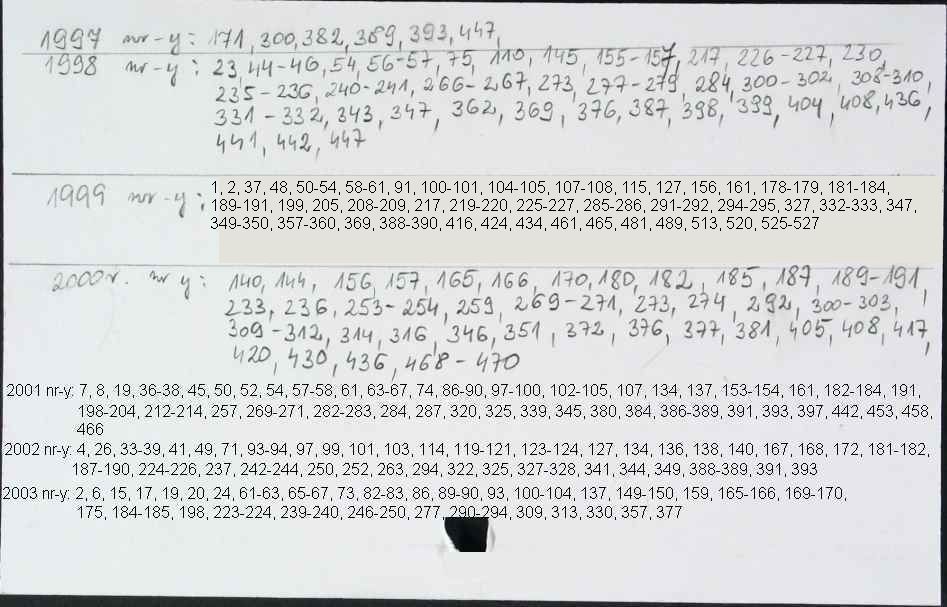 1997 nr-y: 171, 300, 382, 389, 393, 447,
1998 nr-y: 23, 44-46, 54, 56-57, 75, 110, 145, 155-157, 217, 226-227, 230,
235-236, 240-241, 266-267, 273, 277-279, 284, 300-302, 308-310,
331-332, 343, 347, 362, 369, 376, 387, 398, 399, 404, 408, 436,
441, 442, 447
1999 nr-y: 1, 2, 37, 48, 50-54, 58-61, 91, 100-101, 104-105, 107-108, 115, 127, 156, 161, 178-179, 181-184,
189-191, 199, 205, 208-209, 217, 219-220, 225-227, 285-286, 291-292, 294-295, 327, 332-333, 347,
349-350, 357-360, 369, 388-390, 416, 424, 434, 461, 465, 481, 489, 513, 520, 525-527
2000r. nr y: 140, 144, 156, 157, 165, 166, 170, 180, 182, 185, 187, 189-191,
233, 236, 253-254, 259, 269-271, 273, 274, 292, 300-303,
309-312, 314, 316, 346, 351, 372, 376, 377, 381, 405, 408, 417,
420, 430, 436, 468-470
2001 nr-y: 7, 8, 19, 36-38, 45, 50, 52, 54, 57-58, 61, 63-67, 74, 86-90, 97-100, 102-105, 107, 134, 137, 153-154, 161, 182-184, 191,
198-204, 212-214, 257, 269-271, 282-283, 284, 287, 320, 325, 339, 345, 380, 384, 386-389, 391, 393, 397, 442, 453, 458,
466
2002 nr-y: 4, 26, 33-39, 41, 49, 71, 93-94, 97, 99, 101, 103, 114, 119-121, 123-124, 127, 134, 136, 138, 140, 167, 168, 172, 181-182,
187-190, 224-226, 237, 242-244, 250, 252, 263, 294, 322, 325, 327-328, 341, 344, 349, 388-389, 391, 393
2003 nr-y: 2, 6, 15, 17, 19, 20, 24, 61-63, 65-67, 73, 82-83, 86, 89-90, 93, 100-104, 137, 149-150, 159, 165-166, 169-170,
175, 184-185, 198, 223-224, 239-240, 246-250, 277, 290-294, 309, 313, 330, 357, 377